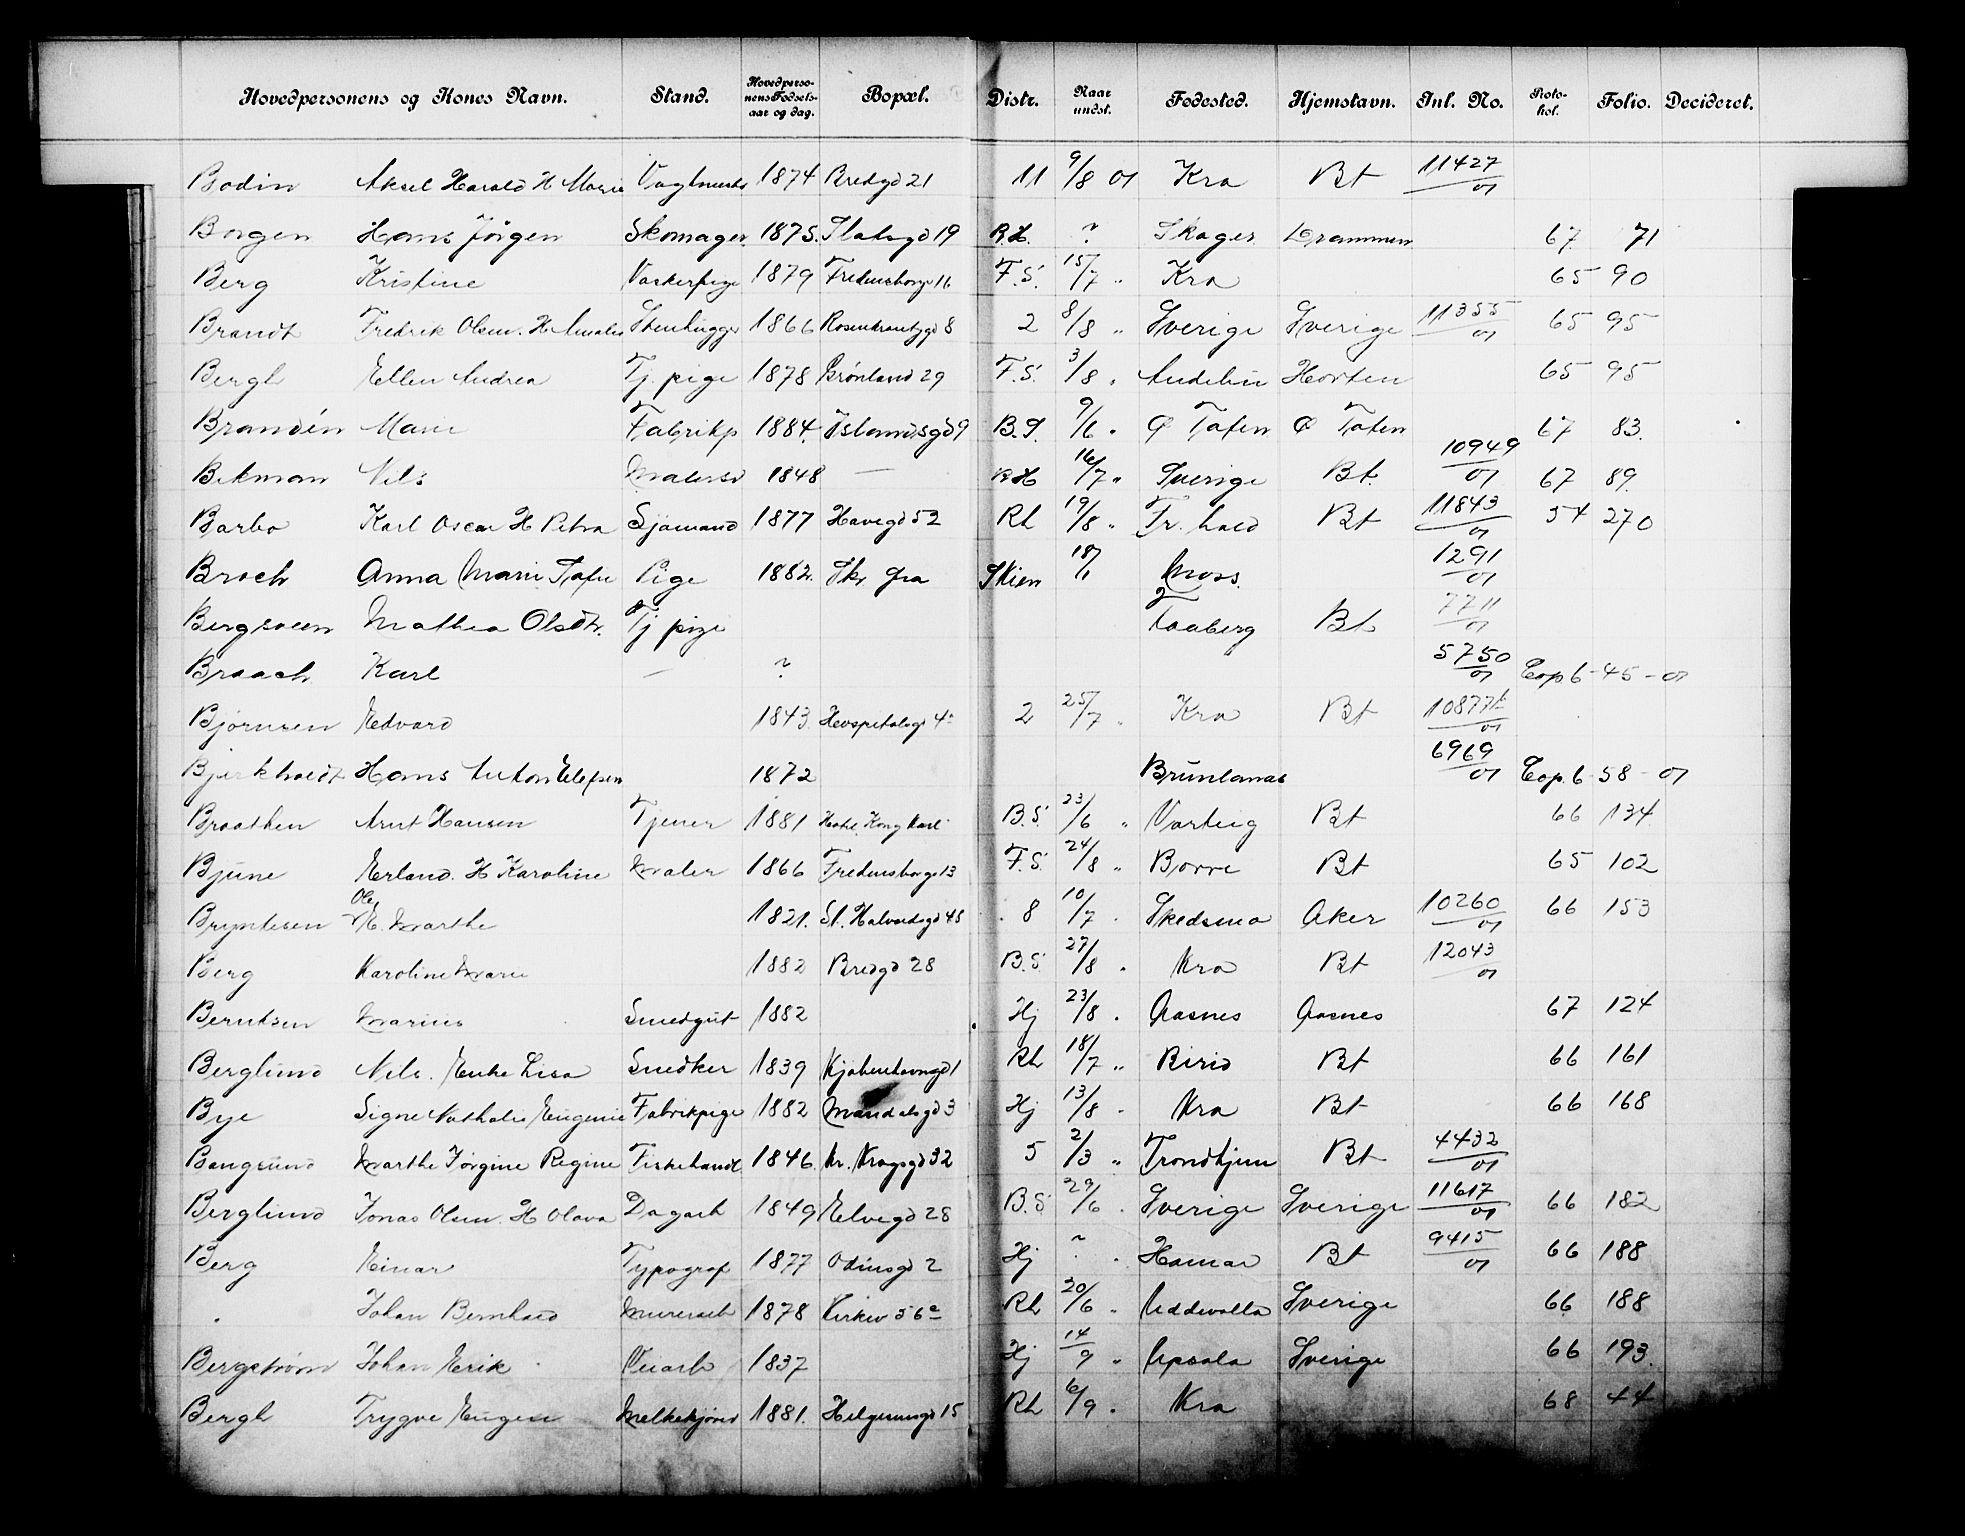 Hovedpersonens og Kones Navn. Stand. Hovedpersonens Fødselsaar og dag. Bopæl. Distr. Naar undst. Fødested. Hjemstavn. Inl. No. Protokol. Folio. Decideret.
Bodin Aksel Harald H Marie 1874 Bredgd 21 11 9/8 01 Kra Bt 11427/01
Borgen Hans Jörgen Skomager 1875. 19 RH. ? Skoger Drammen 67 71
Berg Kristine Vaskerpige 1879 Fredensborgv 16 F.S. 15/7 " Kra 65 90
Brandt Fredrik Olsen. H Amalie Stenhugger 1866 Rosenkrantzgd 8 2 8/8 " Sverige Sverige 11355/01 65 95
Bergh Ellen Andrea Tj. pige 1878 Grönland 29 F.S. 3/8 " Horten 65 95
Brandén Marie Fabrikp 1884. Islandsgd 9 B.S. 9/6 " Ø Toten Ø Toten 67 83.
Bekman Nils Malersv 1848 — RH 16/7 " Sverige Bt. 10949/01 67 89.
Barbo Karl Oscar H Petra Sjömand 1877 Havegd 52 Rh 19/8 " Fr. hald Bt 11843/01 54 270
Broch Anna Marie Tofie Pige 1882. Skr fra Skien 18/1 Moss. 1291/01
Bergsveen Mathea Olsdtr. Tj pige Faaberg Bt 7711/01
Braach Karl — ? 5750/01 Cop 6-45-01
Bjørnsen Edvard 1843 Hospitalsgd 4a 2 25/7 " Kra Bt 10877b/01
Bjerkholdt Hans Anton Elefsen 1872 Brunlanæs 6969/01 Cop. 6-58-01
Braathen Arnt Hansen Tjener 1881 Hotel Kong Karl B.S. 23/6 " Varteig Bt 66 134
Bjune Erland. H Karoline Maler 1866 Fredensborgv 13 F.S. 24/8 " Borre Bt 65 102
Bryntesen Ole E. Marthe 1821. St. Halvardsgd 45 8 10/7 " Skedsmo Aker 10260/01 66 153
Berg Karoline Marie 1882 Bredgd 28 B.S. 27/8 " Kra Bt 12043/01
Berntsen Marius Smedgut 1882 Hj 23/8 " Aasnes Aasnes 67 124
Berglund Nils. Enke Lisa Snedker 1839 Kjøbenhavngd 1 Rh 18/7 " Birid Bt 66 161
Bye Signe Nathalie Eugenie Fabrikpige 1882 Mandalsgd 3 Hj 13/8 " Kra Bt 66 168
Bangsund Marthe Jörgine Regine Fiskehandl 1846. Kr. Krogsgd 32 5 2/3 " Trondhjem Bt 4432/01
Berglund Jonas Olsen. H Olava Dagarb 1849 Elvegd 28 B.S. 29/6 " Sverige Sverige 11617/01 66 182
Berg Einar Typograf 1877 Odinsgd 2 Hj ? " Hamar Bt 9415/01 66 188
" Johan Bernhard Murerarb 1878 Kirkev 56a Rh 20/6 " Uddevalla Sverige 66 188
Bergstrøm Johan Erik Veiarb 1837 Hj 14/9 " Upsala Sverige 66 193.
Bergh Trygve Eugen 1881. Helgesensgd 15 Rh 6/9 " Kra 68 44